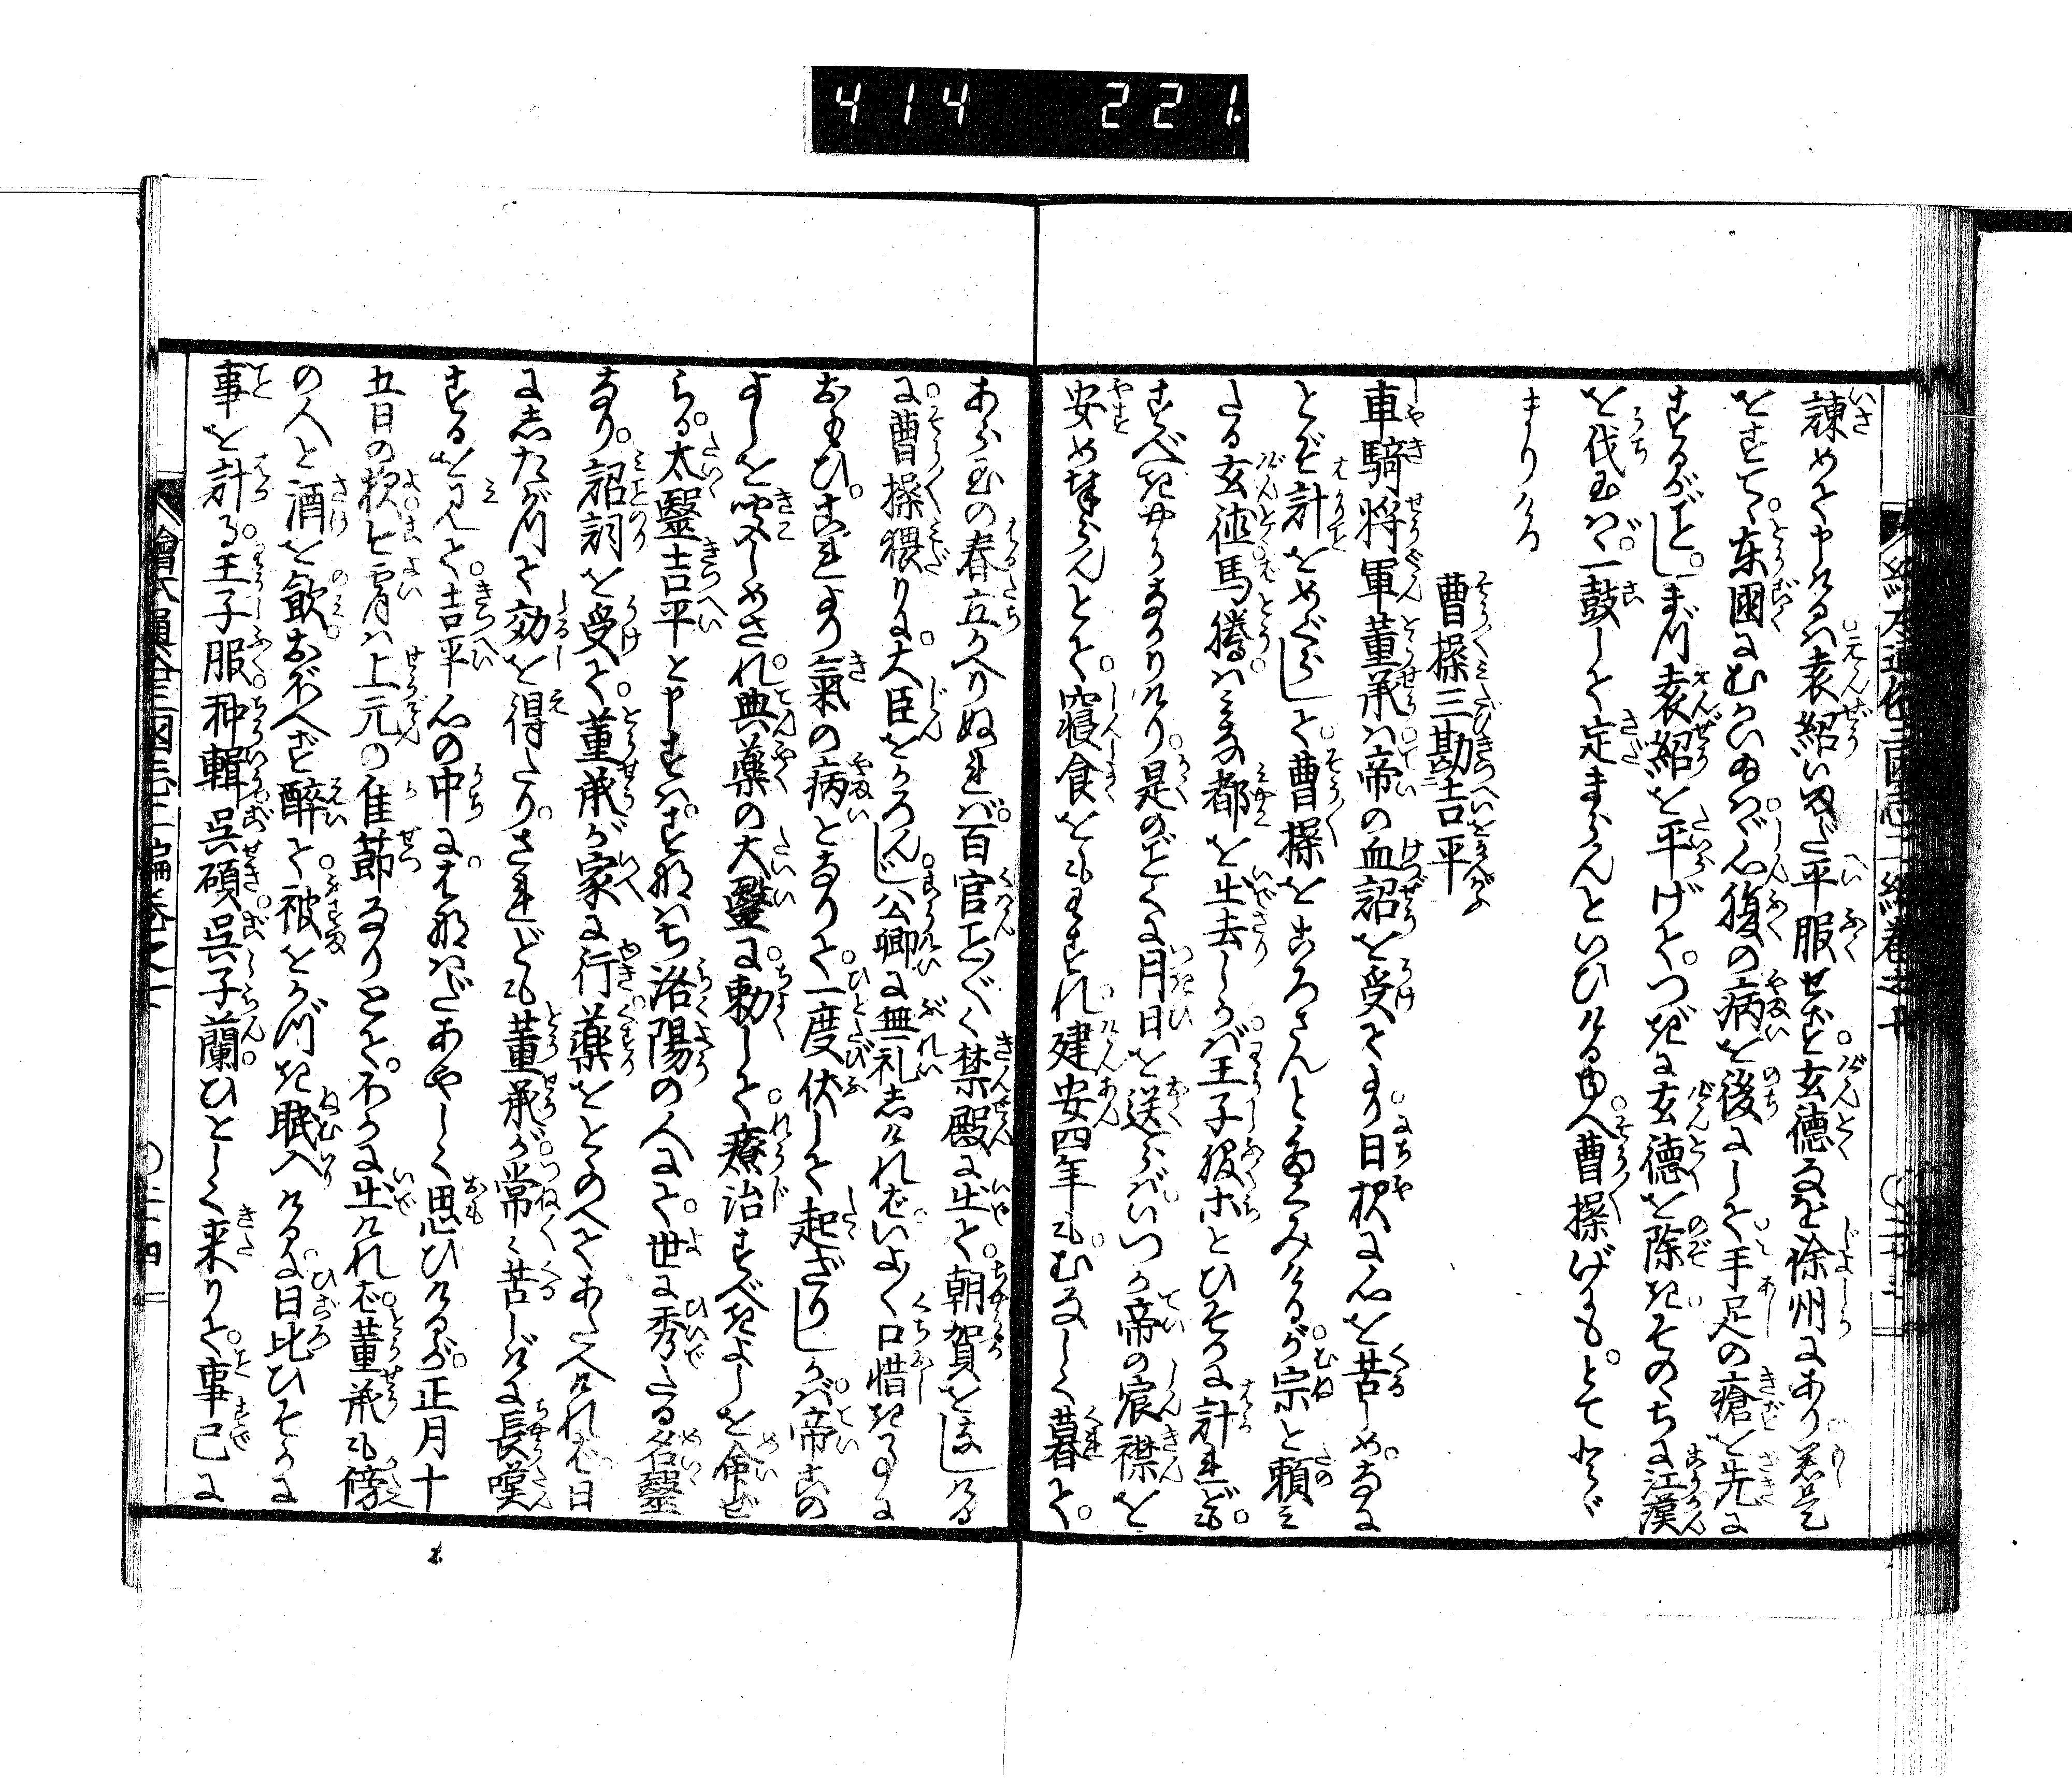 414 221
諫めて申けるハ袁紹いまだ平服せず玄德なを徐州にあり若是
をすてゝ東國にむかひ玉ハゞ心腹の病を後にして手足の瘡を先に
するがごとしまづ袁紹を平げてつぎに玄德を除きそのゝちに江漢
を伐玉ハゞ一鼓して定まらんといひける由へ曹操げにもとてとゞ
まりける
曹操三勘吉平
車騎将軍董承ハ帝の血詔を受てより日夜に心を苦しめなに
とぞ計をめぐらして曹操をころさんとたくみけるが宗と頼ミ
たる玄徳馬騰ハミな都を出去しかバ王子服ホとひそかに計れども
すべきやうなかりけり是のごとくに月日を送らバいつか帝の宸襟を
安め奉らんとて寝食をもわすれ建安四年もむなしく暮て
あら玉の春立かへりぬれバ百官こと〴〵く禁殿に出て朝賀をなしける
に曹操猥りに大臣をかろんじ公卿に無礼志けれバいよ〳〵口惜き事に
おもひこれより氣の病となりて一度伏して起ざりしかバ帝この
よしを聞しめされ典藥の大醫に勅して療治すべきよしを命ぜ
らる太醫吉平と申すハすなハち洛陽の人にて世に秀たる名醫
なり詔詞を受て董承が家に行藥をとゝのへてあたへけれバ日
に志たがつて効を得たりされども董承が常〻苦しげに長嘆
するを見て吉平心の中にはなハだあやしく思ひけるが正月十
五日の夜と宵ハ上元の佳節なりとて外に出けれバ董承も傍
の人と酒を飲おぼへず醉て被をかづき眠入けるに日比ひそかに
事を計る王子服种輯呉碩呉子蘭ひとしく来りて事已に